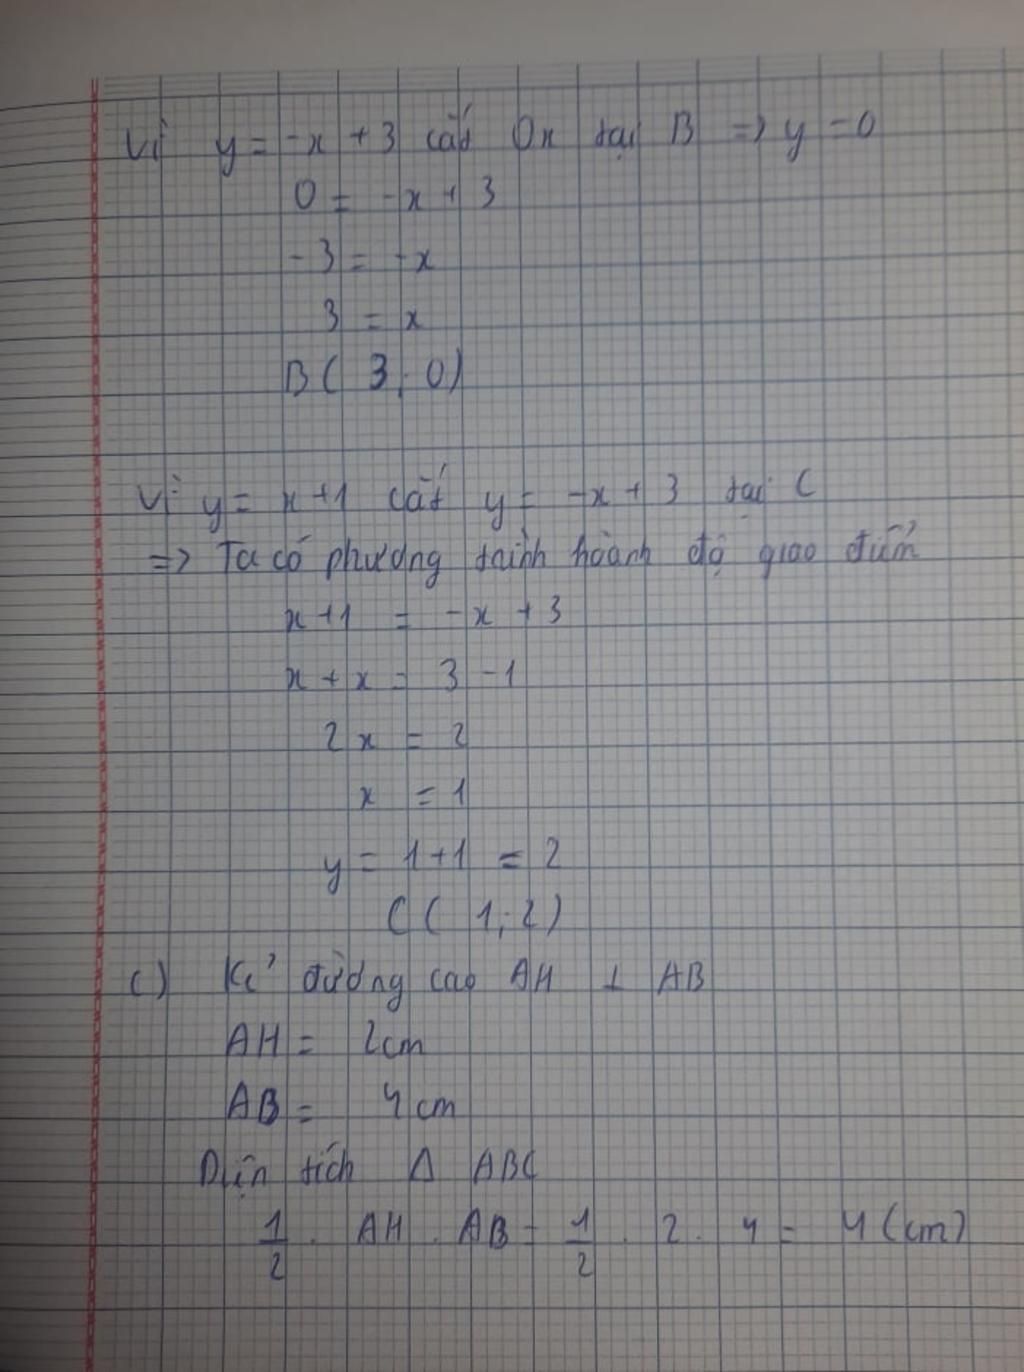 Vì y = -x + 3 cắt Ox tại B => y = 0
0 = -x + 3
-3 = -x
3 = x
B ( 3 ; 0)
Vì y = x+1 cắt y = -x + 3 tại C
=> Ta có phương trình hoành độ giao điểm
x+1 = -x + 3
x + x = 3 - 1
2x = 2
x = 1
y = 1+1 = 2
C ( 1; 2)
c) Kẻ đường cao AH ⊥ AB
AH = 2cm
AB = 4 cm
Diện tích Δ ABC
1/2 . AH . AB = 1/2 . 2 . 4 = 4 (cm)